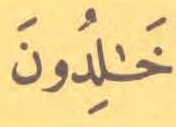 خَـٰلِدُونَ